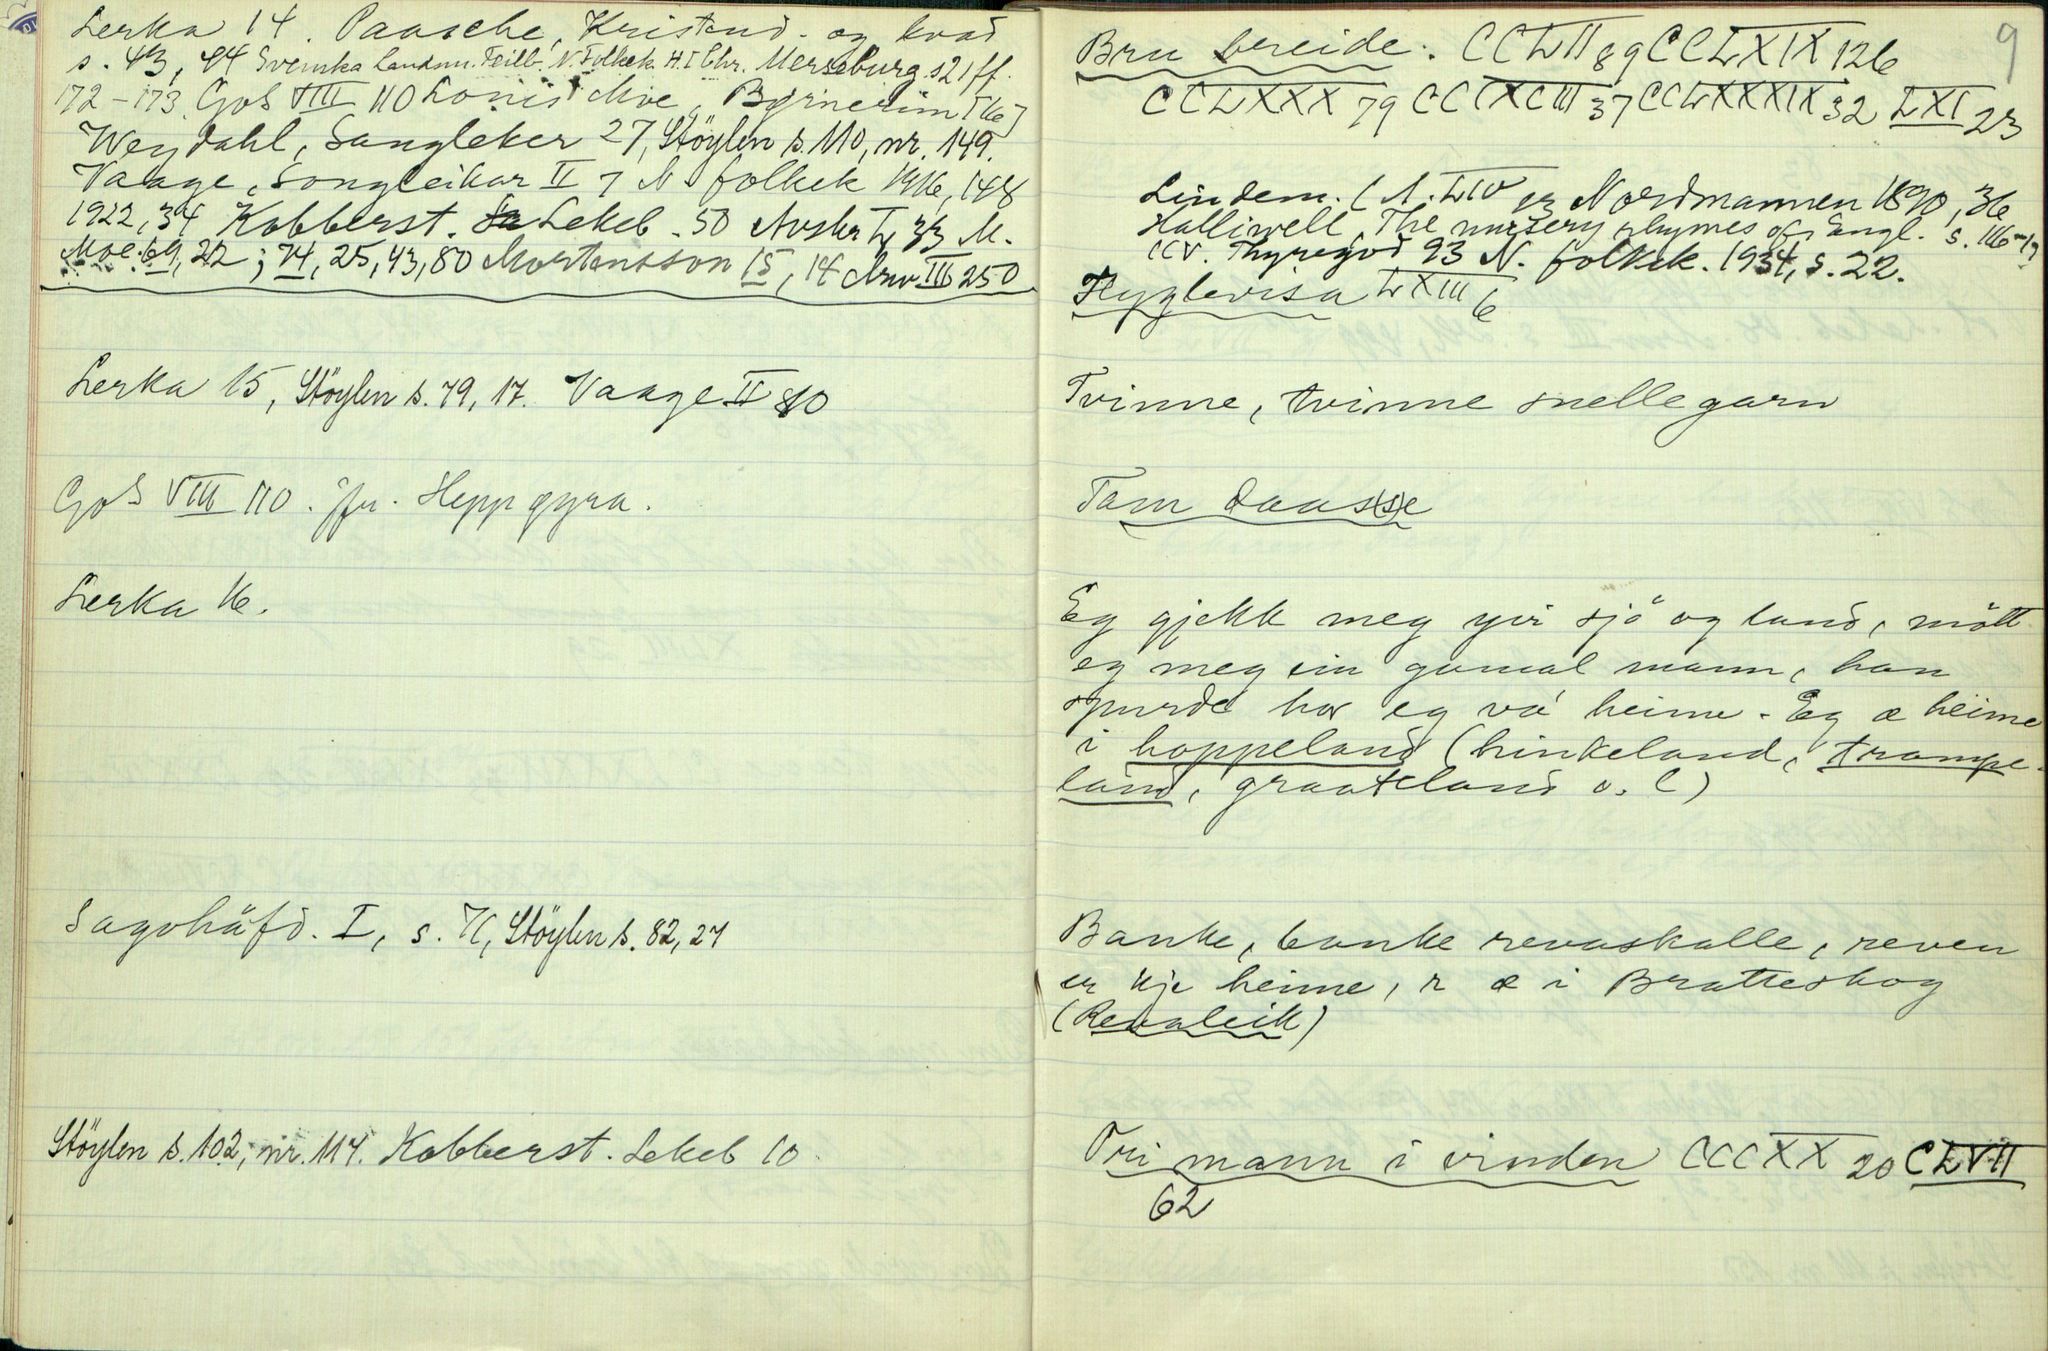 Lerka 14. Paasche, Kristend. og kvad
s. 43, 44 Svenska Landsm. Feilb. N. Folkek. H. I Chr. Merseburg s 21 ff.
172-173. GoS VIII 110 Lonis Moe, Byrnerim [16]
Weydahl, Sangleker 27, Stöylen s. 110, nr. 149.
Vaage, Songleikar II 7 N folkek 1916, 148
1922, 34 Kobberst. Lekeb. 50 Avskr L 33 M.
Moe 69, 22; 74, 25, 43, 80 Mortensson 15, 14 Arv III 250
Lerka 15, Stöylen s. 79, 17. Vaage II 80
GoS VIII 110. jfr. Heppgyra.
Lerka 16.
Sagohäfd. I, s. 71, Stöylen s. 82, 27
Stöylen s. 102, nr. 114. Kobberst. Lekeb 10.
9
Bru bereide. CCLII 89 CCLXIX 126
CCLXXX 79 CCIXCIII 37 CCLXXXIX 32 LXI 23
Lindem. (A. LIV er Nordmannen 1890, 36
Halliwell, The nursery rhymes of Engl. s. 116-17
CCV. Thyregod 93 N. folkek. 1934, s. 22.
Hyglevisa LXIII 6
Tvinne, tvinne snellegarn
Tam daas(s)e
Eg gjekk meg yvi sjö og land, mött
eg meg ein gamal mann, han
spurde hor eg va heime. Eg æ heime
i hoppeland (hinkeland, trampe-
land, graateland o. l)
Banke, banke revaskalle, reven
er kje heime, n æ i Bratteskog
(Revaleik)
Tri mann i vinden CCCXX 20 CLVII
62